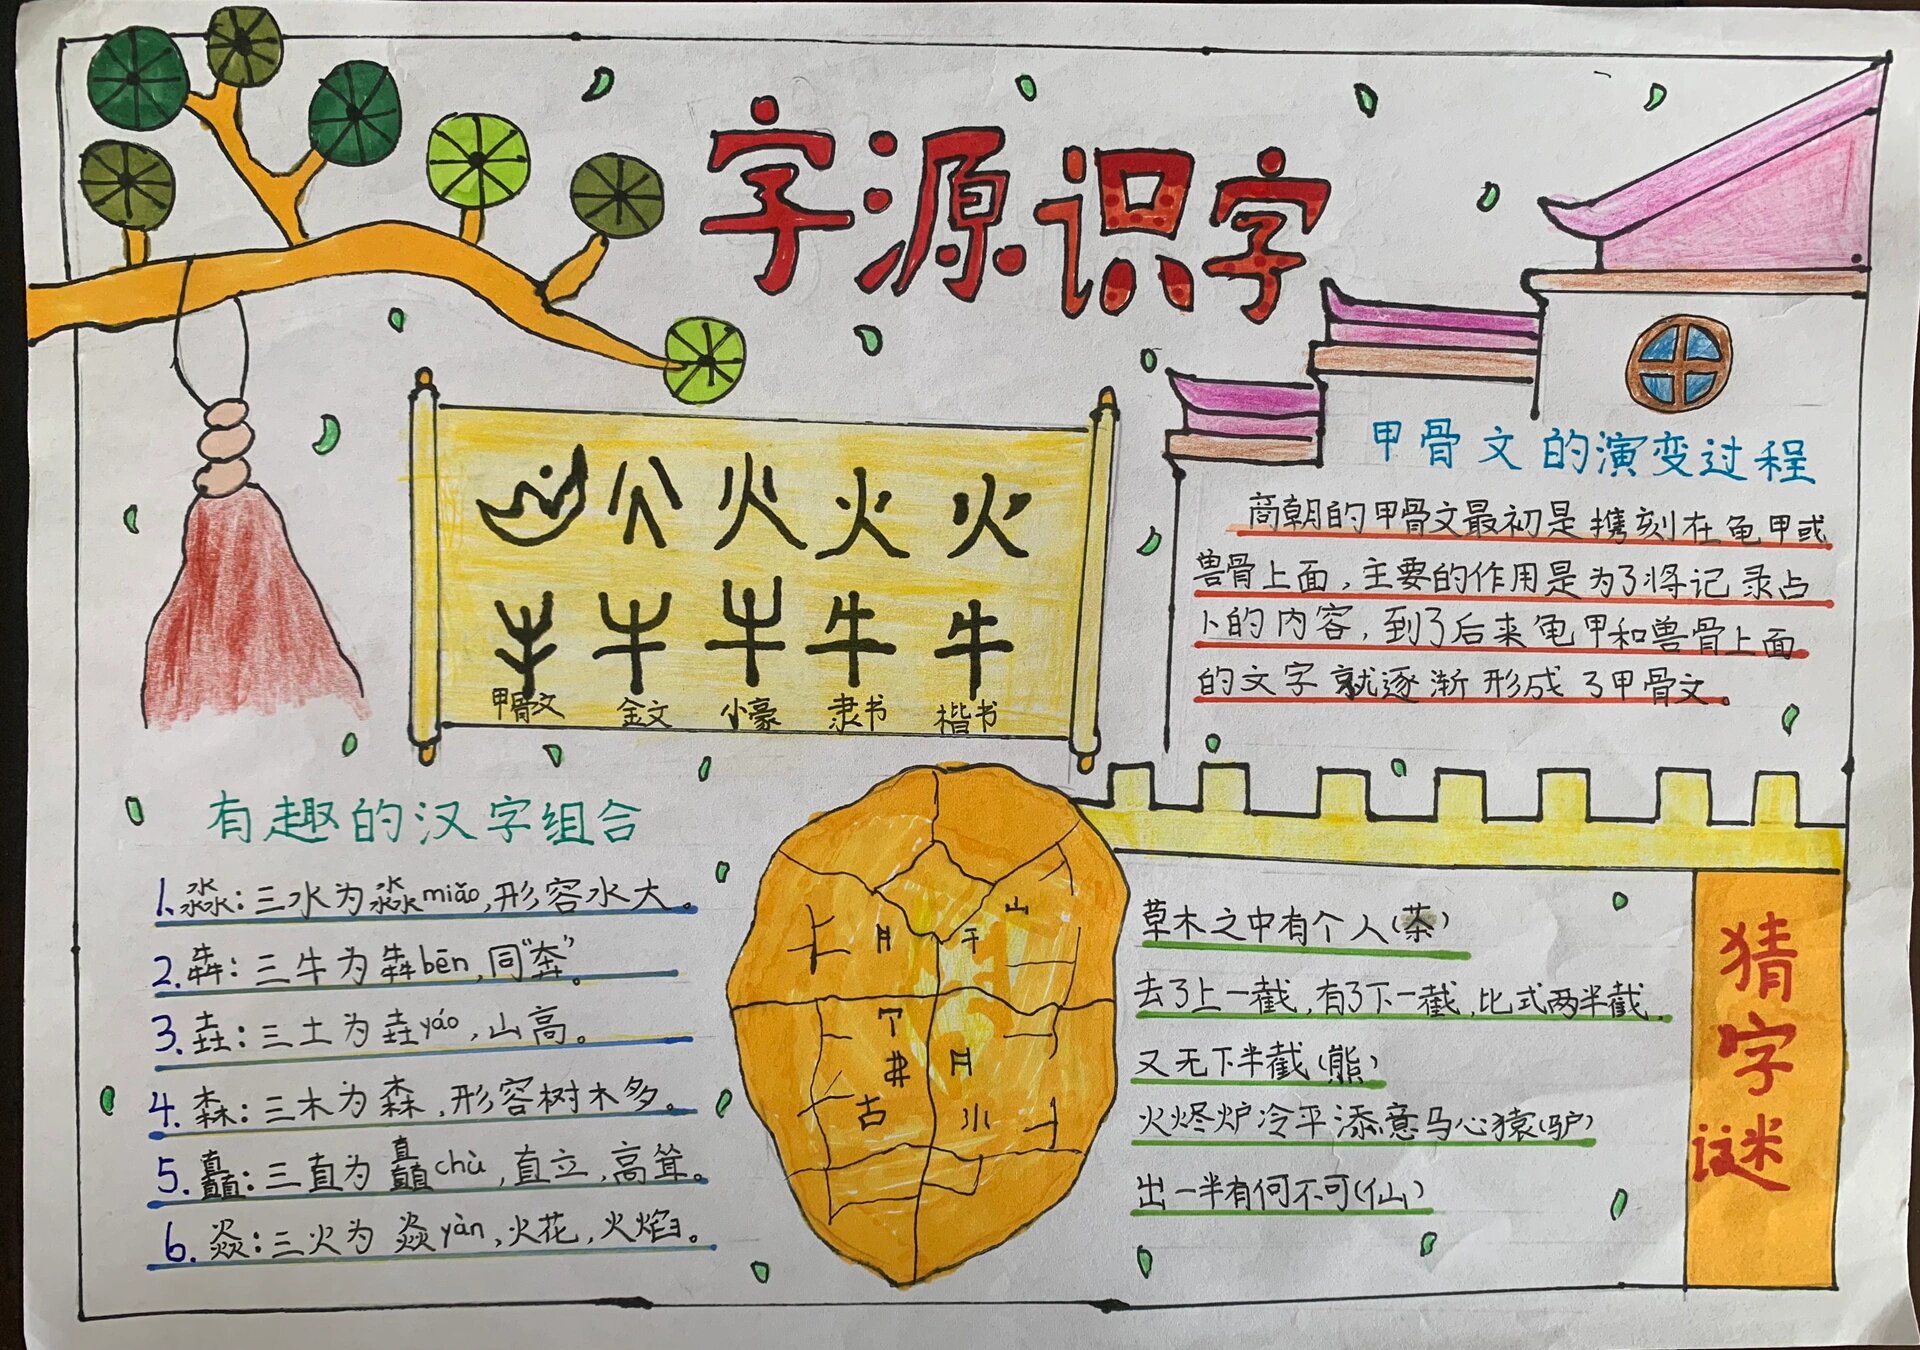 字源识字
火 火 火
牛 牛 牛 牛
甲骨文 金文 小豪 隶书 楷书
甲骨文的演变过程
商朝的甲骨文最初是携刻在龟甲或
兽骨上面，主要的作用是为了将记录占
卜的内容，到了后来龟甲和兽骨上面
的文字就逐渐形成了甲骨文。
有趣的汉字组合
1.淼：三水为淼miǎo，形容水大。
2.犇：三牛为犇bēn，同“奔”。
3.垚：三土为垚yáo，山高。
4.森：三木为森，形容树木多。
5.矗：三直为矗chù，直立，高耸。
6.焱：三火为焱yàn，火花，火焰。
山
古
猜字谜
草木之中有个人（茶）
去了上一截，有了下一截，比式两半截，
又无下半截（熊）
火烬炉冷平添意马心猿（驴）
出一半有何不可（仙）